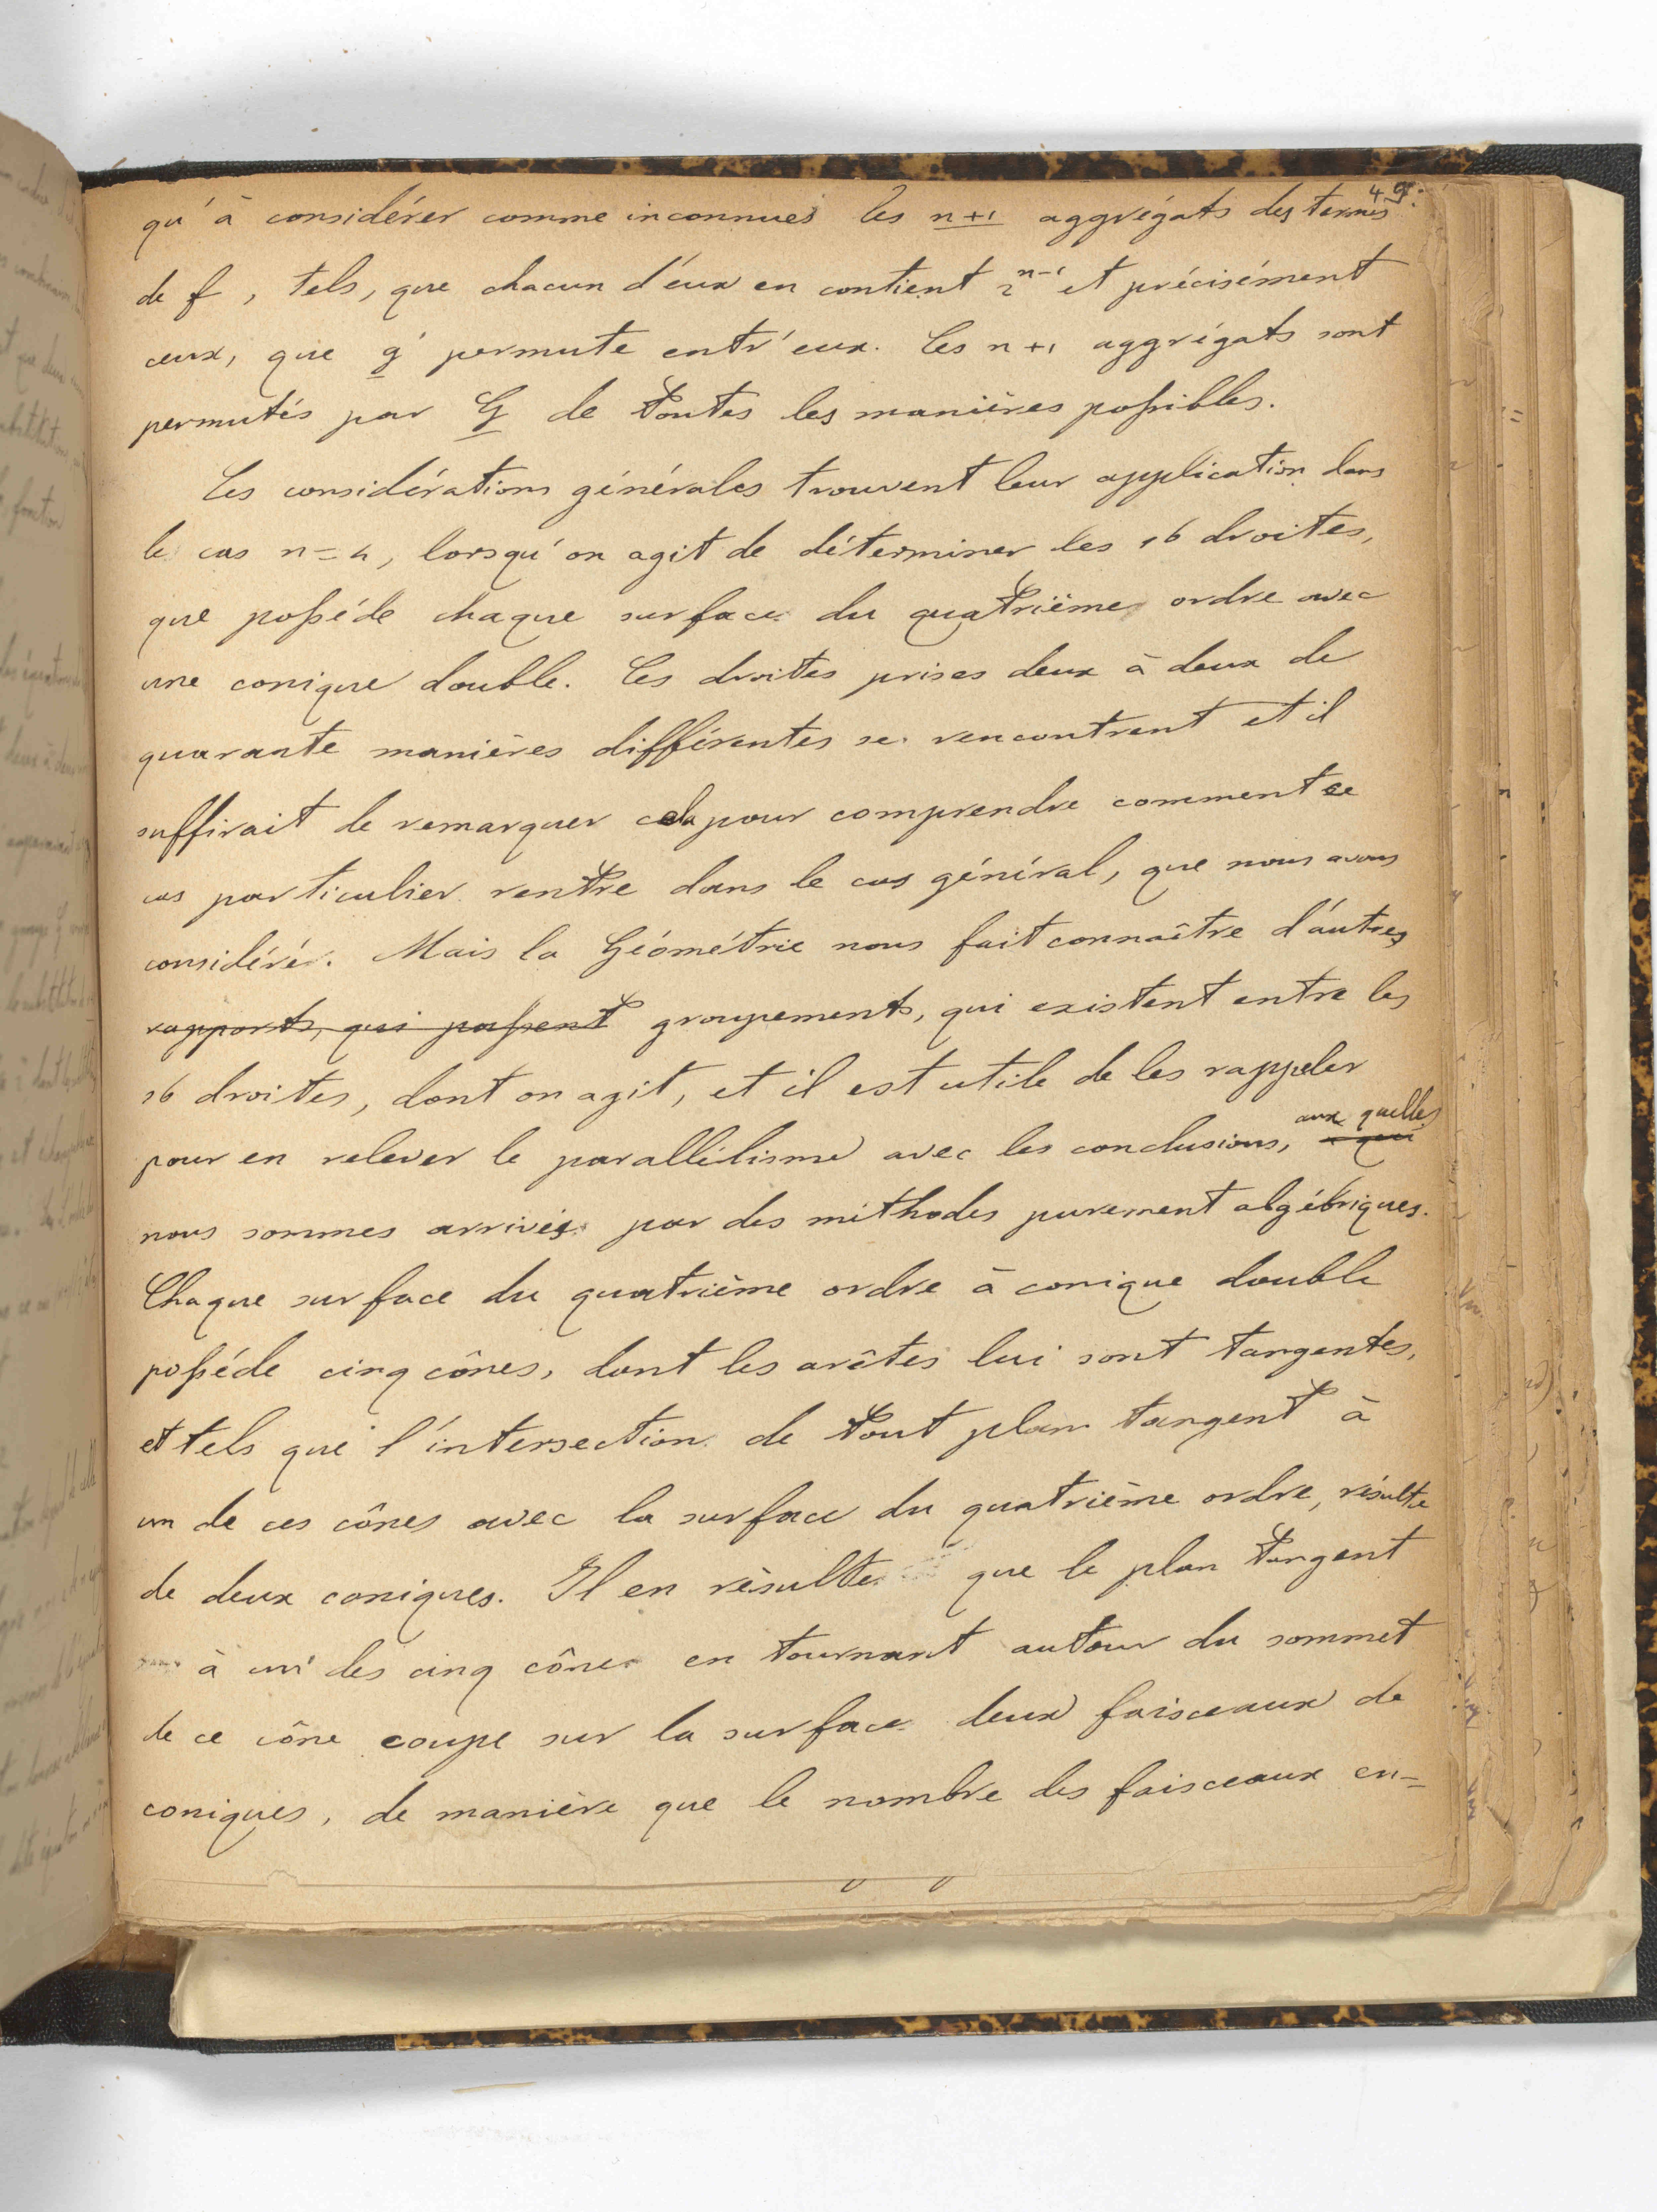 49.
qu'à considérer comme inconnues les n+1 aggrégats des termes
de f, tels, que chacun d'eux en contient 2^{n-1} et précisément
ceux, que g' permute entr'eux. Ces n+1 aggrégats sont
permutés par G de toutes les manières possibles.
Ces considérations générales trouvent leur application dans
le cas n=4, lorsqu'on agit de déterminer les 16 droites,
que posséde chaque surface du quatrième ordre avec
une conique double. Ces droites prises deux à deux de
quarante manières différentes se rencontrent et il
suffirait de remarquer cela pour comprendre comment ce
cas particulier rentre dans le cas général, que nous avons
considéré. Mais la Géométrie nous fait connaître d'autres
rapports, qui passent groupements, qui existent entre les
16 droites, dont on agit, et il est utile de les rappeler
pour en relever le parallélisme avec les conclusions, aux quelles
nous sommes arrivés par des méthodes purement algébriques.
Chaque surface du quatrième ordre à conique double
posséde cinq cônes, dont les arêtes lui sont tangentes,
et tels que l'intersection de tout plan tangent à
un de ces cônes avec la surface du quatrième ordre, résulte
de deux coniques. Il en résulte que le plan tangent
à un des cinq cônes en tournant autour du sommet
de ce cône coupe sur la surface deux faisceaux de
coniques, de manière que le nombre des faisceaux en-